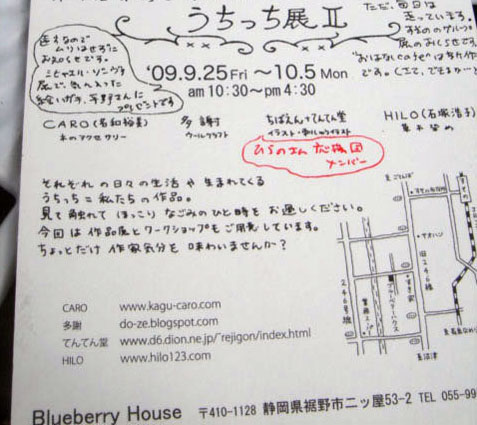 うちっち展Ⅱ
'09.9.25 Fri ～10.5 Mon
am 10:30～pm 4:30
ただ、毎日は
走っています。
展のおしらせです。
遠方なので
ムリはせずに
おみのくせです。
展で気に入った
絵ハガキ、平野さんに
プレゼントです
CARO(名和裕美)
木のアクセサリー
多謝
ウールクラフト
ちばえん+てんてん堂
HILO(石塚浩子)
草木染め
ひらのさん応援団
メンバー
それぞれの日々の生活や生まれてくる
うちっち=私たちの作品。
見て触れて ほっこり なごみのひと時を お過しください。
今回は 作品展とワークショップもご用意しています。
ちょっとだけ 作家気分を 味わいませんか?
CARO www.kagu-caro.com
多謝 do-ze.blogspot.com
てんてん堂 www.d6.dion.ne.jp/~rejigon/index.html
HILO www.hilo123.com
至ごてんば
旧246号線
246号線
至沼津
Blueberry House 〒410-1128 静岡県裾野市二ッ屋53-2 TEL 055-99